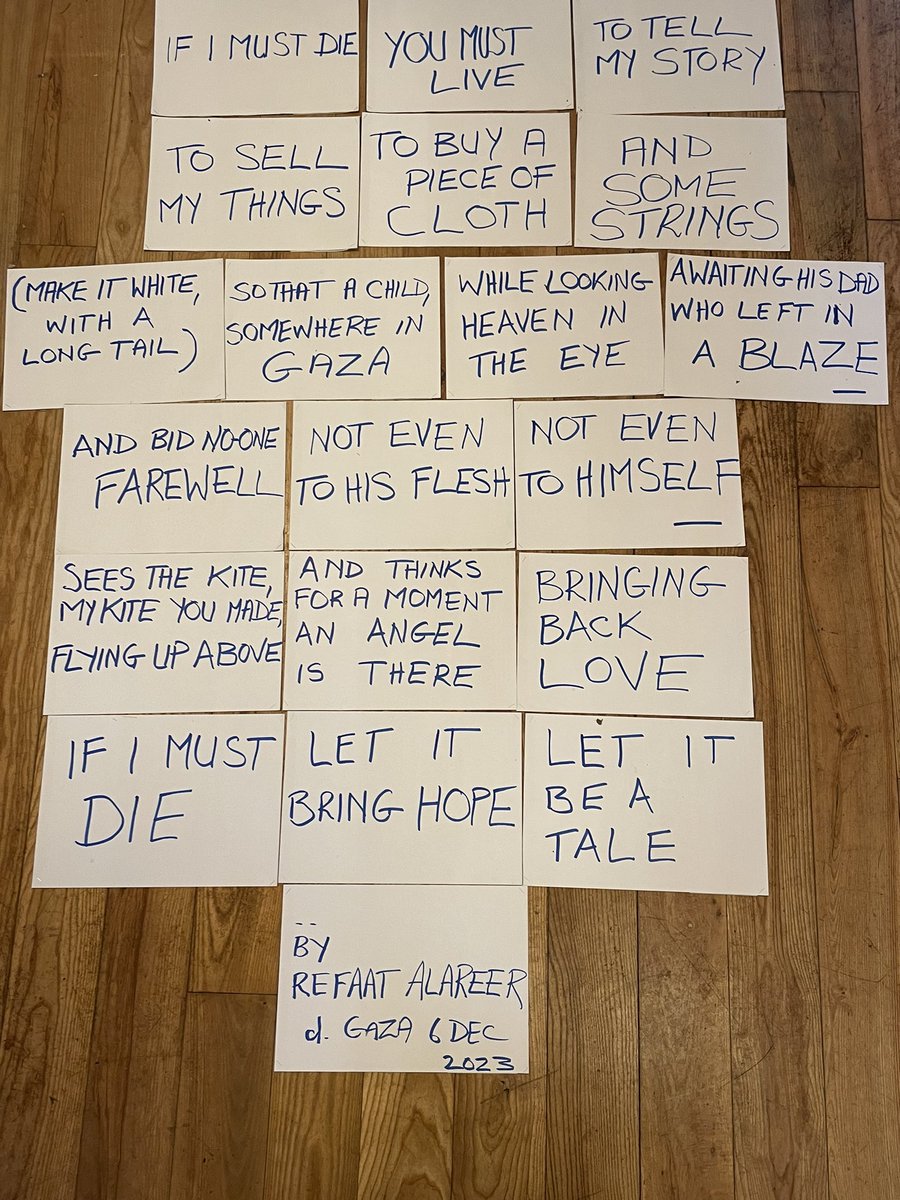 IF I MUST DIE
YOU MUST
LIVE
TO TELL
MY STORY
TO SELL
MY THINGS
TO BUY A
PIECE OF
CLOTH
AND
SOME
STRINGS
(MAKE IT WHITE,
WITH A
LONG TAIL)
SO THAT A CHILD,
SOMEWHERE IN
GAZA
WHILE LOOKING
HEAVEN IN
THE EYE
AWAITING HIS DAD
WHO LEFT IN
A BLAZE
—
AND BID NO-ONE
FAREWELL
NOT EVEN
TO HIS FLESH
NOT EVEN
TO HIMSELF
—
SEES THE KITE,
MY KITE YOU MADE,
FLYING UP ABOVE
AND THINKS
FOR A MOMENT
AN ANGEL
IS THERE
BRINGING
BACK
LOVE
IF I MUST
DIE
LET IT
BRING HOPE
LET IT
BE A
TALE
--
BY
REFAAT ALAREER,
d. GAZA 6 DEC
2023